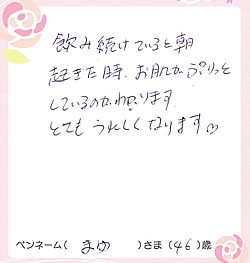 飲み続けていると朝
起きた時、お肌がぷりっと
しているのがわかります
とても うれしくなります♡
ペンネーム( まゆ )さま(46)歳